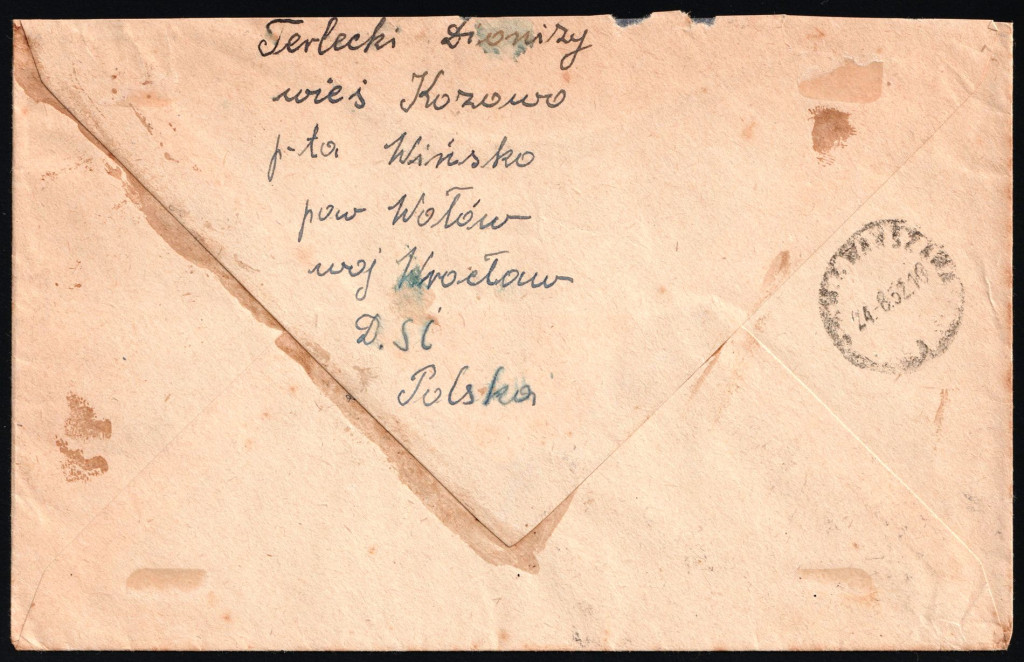 Terlecki Dionizy
wieś Kozowo
p-ta Wińsko
pow Wołów
woj Wrocław
D. Sl
Polska
WARSZAWA
24.-8.52.10